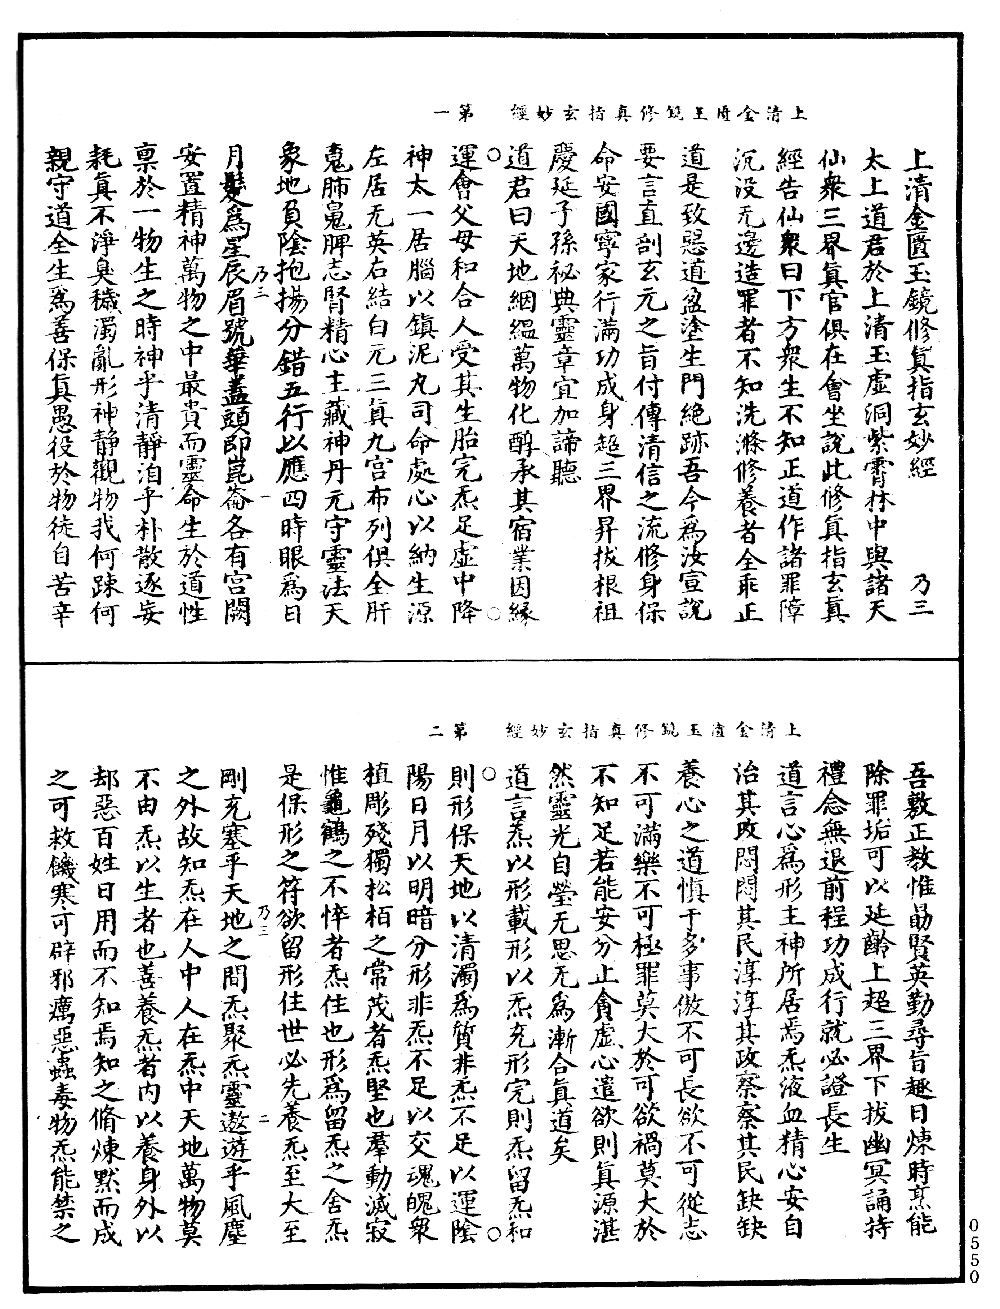 上清金匱玉鏡修真指玄妙經　第一
上清金匱玉鏡修眞指玄妙經　乃三
太上道君於上清玉虛洞紫霄林中與諸天
仙衆三界眞官俱在會坐說此修眞指玄眞
經告仙衆曰下方衆生不知正道作諸罪障
沉没无邊造罪者不知洗滌修養者全乖正
道是致惡道盈塗生門絶跡吾今爲汝宣說
要言直剖玄元之旨付傳清信之流修身保
命安國寧家行滿功成身超三界昇拔根祖
慶延子孫祕典靈章宜加諦聽
道君曰天地絪縕萬物化醇承其宿業因緣
運會父母和合人受其生胎完炁足虛中降
神太一居腦以鎮泥丸司命處心以納生源
左居无英右結白元三眞九宫布列俱全肝
䰟肺䰟脾志腎精心主藏神丹元守靈法天
象地負陰抱揚分錯五行以應四時眼爲日
乃三　一
月髮爲星辰眉號華蓋頭即崑崙各有宫闕
安置精神萬物之中最貴而靈命生於道性
禀於一物生之時神乎清靜洎乎朴散逐妄
耗眞不淨臭穢濁亂形神靜觀物我何踈何
親守道全生爲善保眞愚役於物徒自苦辛
上清金匱玉鏡修真指玄妙經　第二
吾敷正教惟勗賢英勤尋旨趣日煉時烹能
除罪垢可以延齡上超三界下拔幽冥誦持
禮念無退前程功成行就必證長生
道言心爲形主神所居焉炁液血精心安自
治其政悶悶其民淳淳其政察察其民缺缺
養心之道慎于多事傲不可長欲不可從志
不可滿樂不可極罪莫大於可欲禍莫大於
不知足若能安分止貪虛心遣欲則眞源湛
然靈光自瑩无思无為漸合眞道矣
道言炁以形載形以炁充形完則炁留炁和
則形保天地以清濁爲質非炁不足以運陰
陽日月以明暗分形非炁不足以交魂魄衆
植彫殘獨松栢之常茂者炁堅也羣動滅寂
惟龜鶴之不悴者炁住也形爲留炁之舍炁
是保形之符欲留形住世必先養炁至大至
乃三　二
剛充塞乎天地之間炁聚炁靈遨遊乎風塵
之外故知炁在人中人在炁中天地萬物莫
不由炁以生者也善養炁者内以養身外以
却惡百姓日用而不知焉知之脩煉默而成
之可救饑寒可辟邪癘惡蟲毒物炁能禁之
0550